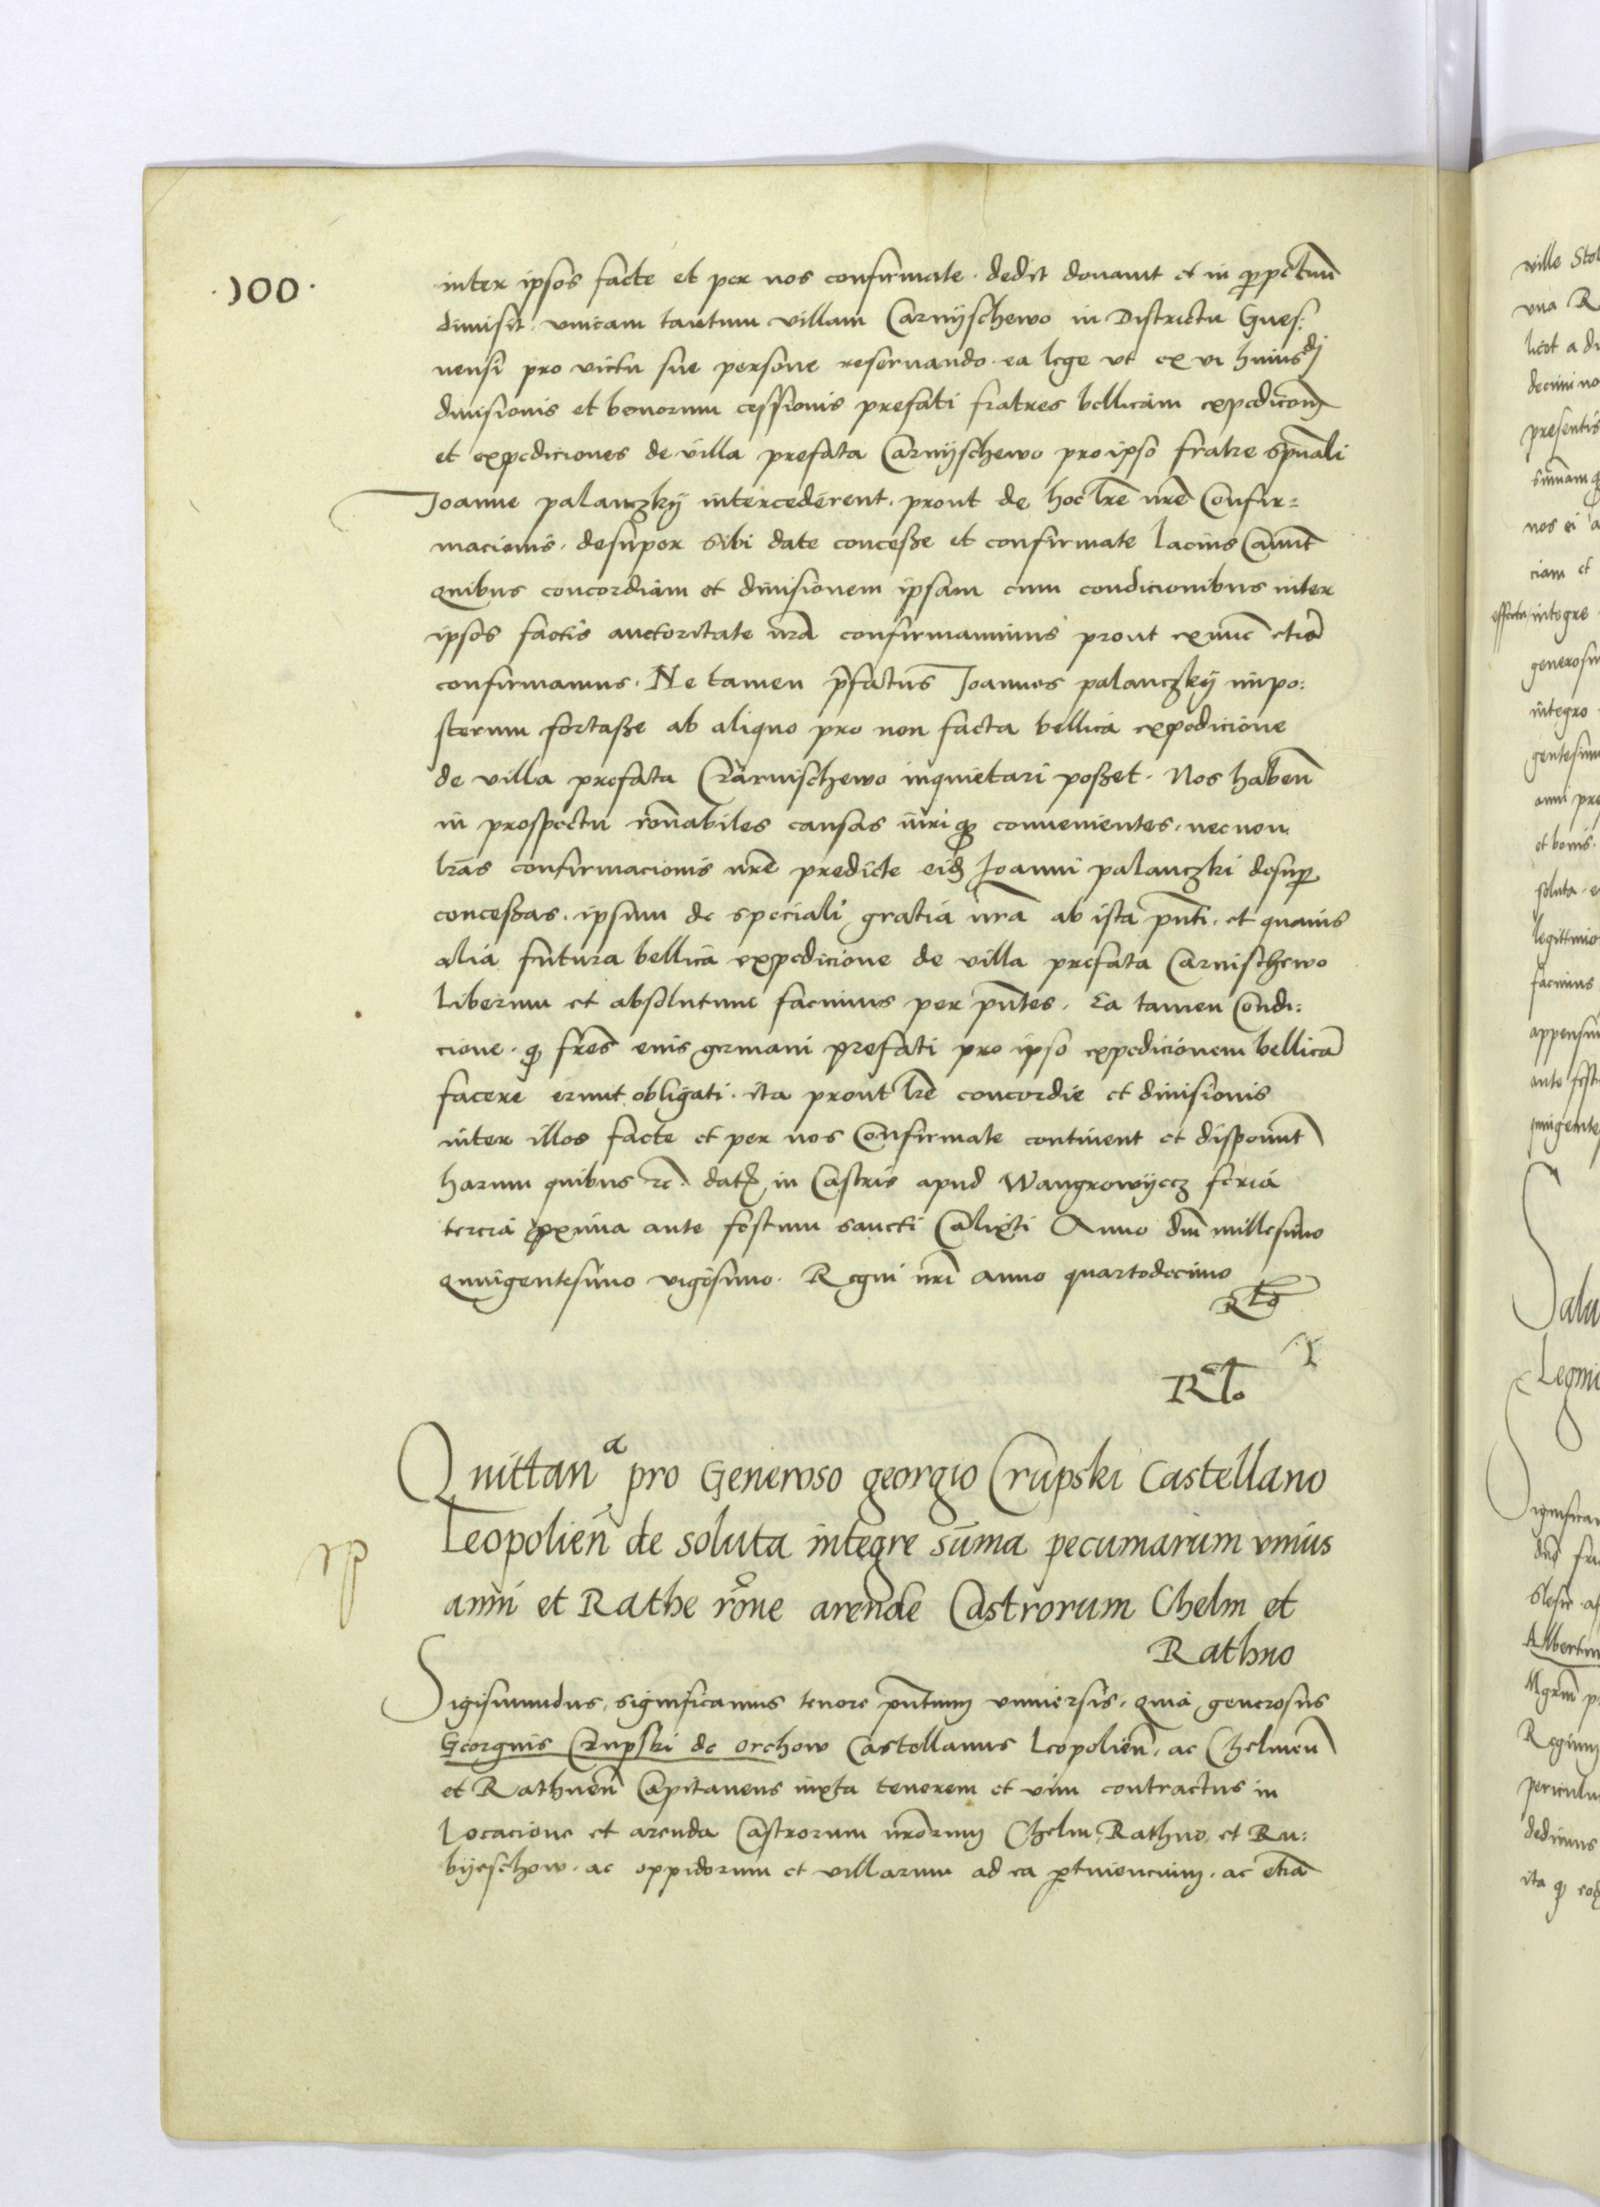 ·100·
inter ipsos facte et per nos confirmate · dedit donauit et in ꝑpetuū
dimisit · vnicam tantum villam Carnyschewo in Districtu Gnes:
nensi pro victu sue persone reseruando · ea lege vt ex vi huiusdj
diuisionis et bonorum cessionis prefati fratres bellicam expedicionē
et expediciones de villa prefata Carnyschewo pro ipso fratre spūali
Joanne palanczkÿ intercederent · prout de hoc lrē nrē Confir=
macionis · desuper sibi date conceße et confirmate lacius Canūt
quibus concordiam et diuisionem ipsam cum condicionibus inter
ipsos factis auctoritate nrā confirmauimus prout exnūc etiā
confirmamus · Ne tamen p̄fatus Joannes palanczkÿ inpo:
sterum fortaße ab aliquo pro non facta bellica expedicione
de villa prefata Czarnischewo inquietari poßet · Nos habeñ
in prospectu rōnabiles causas iuriqꝫ conuenientes · necnon
lrās confirmacionis nrē predicte eidꝫ Joanni palanczki desuꝑ
conceßas · ipsum de speciali gratia nrā ab ista pn̄ti · et quauis
alia futura bellica expedicione de villa prefata Carnischewo
liberum et absolutum facimus per pn̄tes · Ea tamen Condi:
cione · qꝫ frēs eius germani prefati pro ipso expedicionem bellicā
facere erunt obligati · ita prout lrē concordie et diuisionis
inter illos facte et per nos Confirmate continent et disponūt
harum quibus ꝛc̄ · datꝫ in Castris apud Wangrowyecz feria
tercia ꝓxima ante festum sancti Calixti Anno dnī millesimo
quingentesimo vigesimo · Regni nrī anno quartodecimo
Rlō
Rlō
Quittanᵃ pro Generoso georgio Crupski Castellano
Leopolieñ de soluta integre sūma pecuniarum vnius
anni et Rathe rōne arende Castrorum Chelm et
Rathno
Sigismundus, significamus tenore pn̄tium vniuersis · quia generosus
Georgius Crupski de orchow Castellanus Leopolieñ · ac Chelmeñ
et Rathneñ Capitaneus iuxta tenorem et vim contractus in
Locacione et arenda Castrorum nrōrum Chelm, Rathno, et Ru:
byeschow · ac oppidorum et villarum ad ea ꝑtinencium · ac etiā